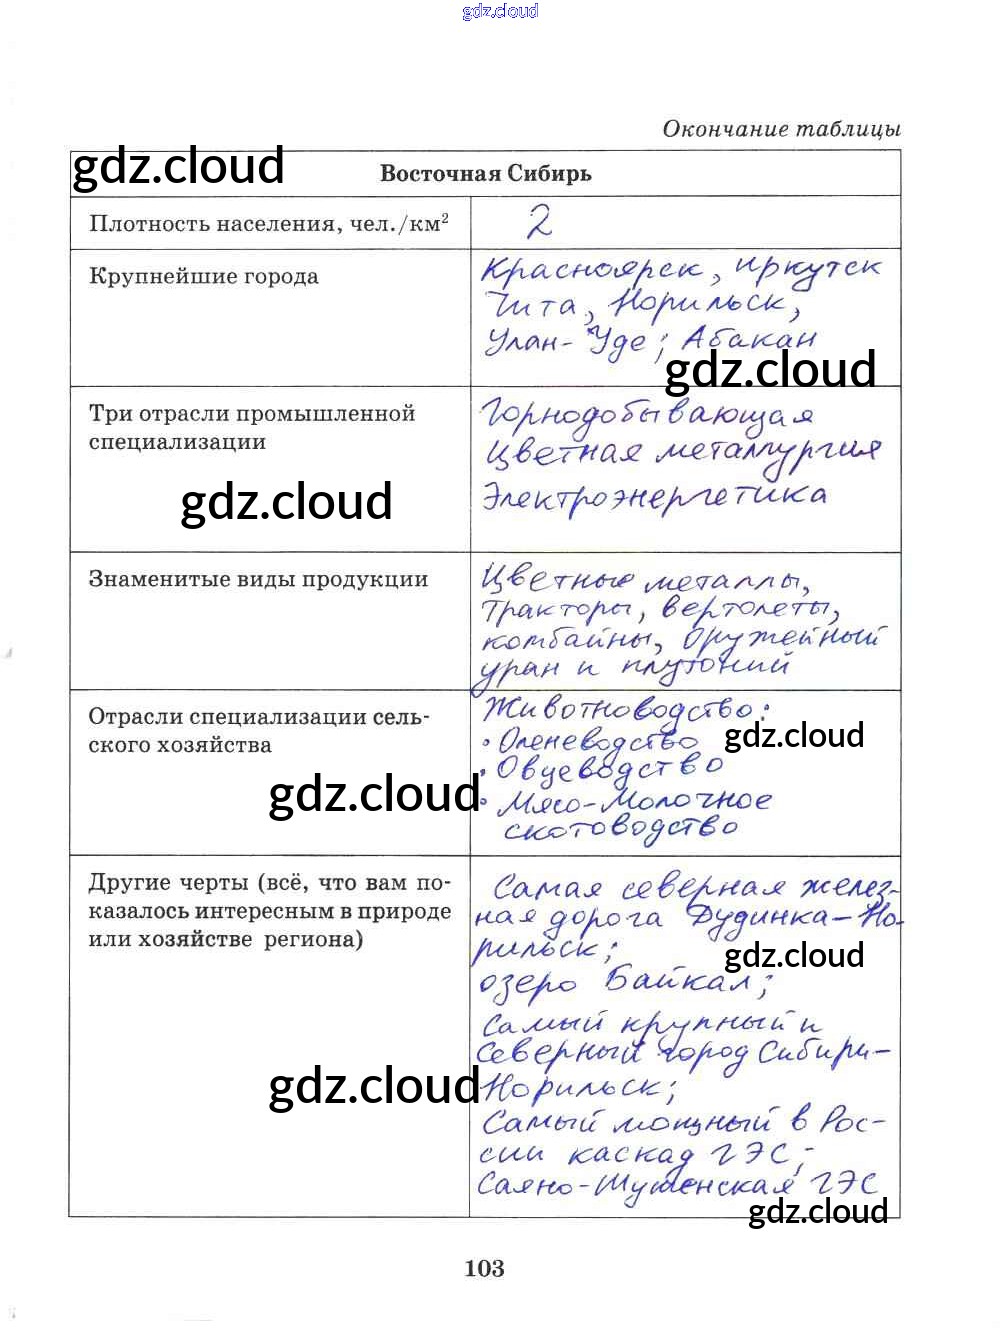 gdz.cloud
Окончание таблицы
gdz.cloud
Восточная Сибирь
Плотность населения, чел./км²
2
Крупнейшие города
Красноярск, Иркутск
Чита, Норильск,
Улан-Уде; Абакан
gdz.cloud
Три отрасли промышленной
специализации
Горнодобывающая
Цветная металлургия
Электроэнергетика
gdz.cloud
Знаменитые виды продукции
Цветные металлы,
тракторы, вертолеты,
комбайны, Оружейный
уран и плутоний
Отрасли специализации сель-
ского хозяйства
Животноводство:
• Оленеводство
gdz.cloud
• Овцеводство
gdz.cloud
• Мясо-Молочное
скотоводство
Другие черты (всё, что вам по-
казалось интересным в природе
или хозяйстве региона)
Самая северная желез-
ная дорога Дудинка-Но-
рильск;
gdz.cloud
озеро Байкал;
Самый крупный и
Северный город Сибири-
Норильск;
gdz.cloud
Самый мощный в Рос-
сии каскад ГЭС;
Саяно-Шушенская ГЭС
gdz.cloud
103